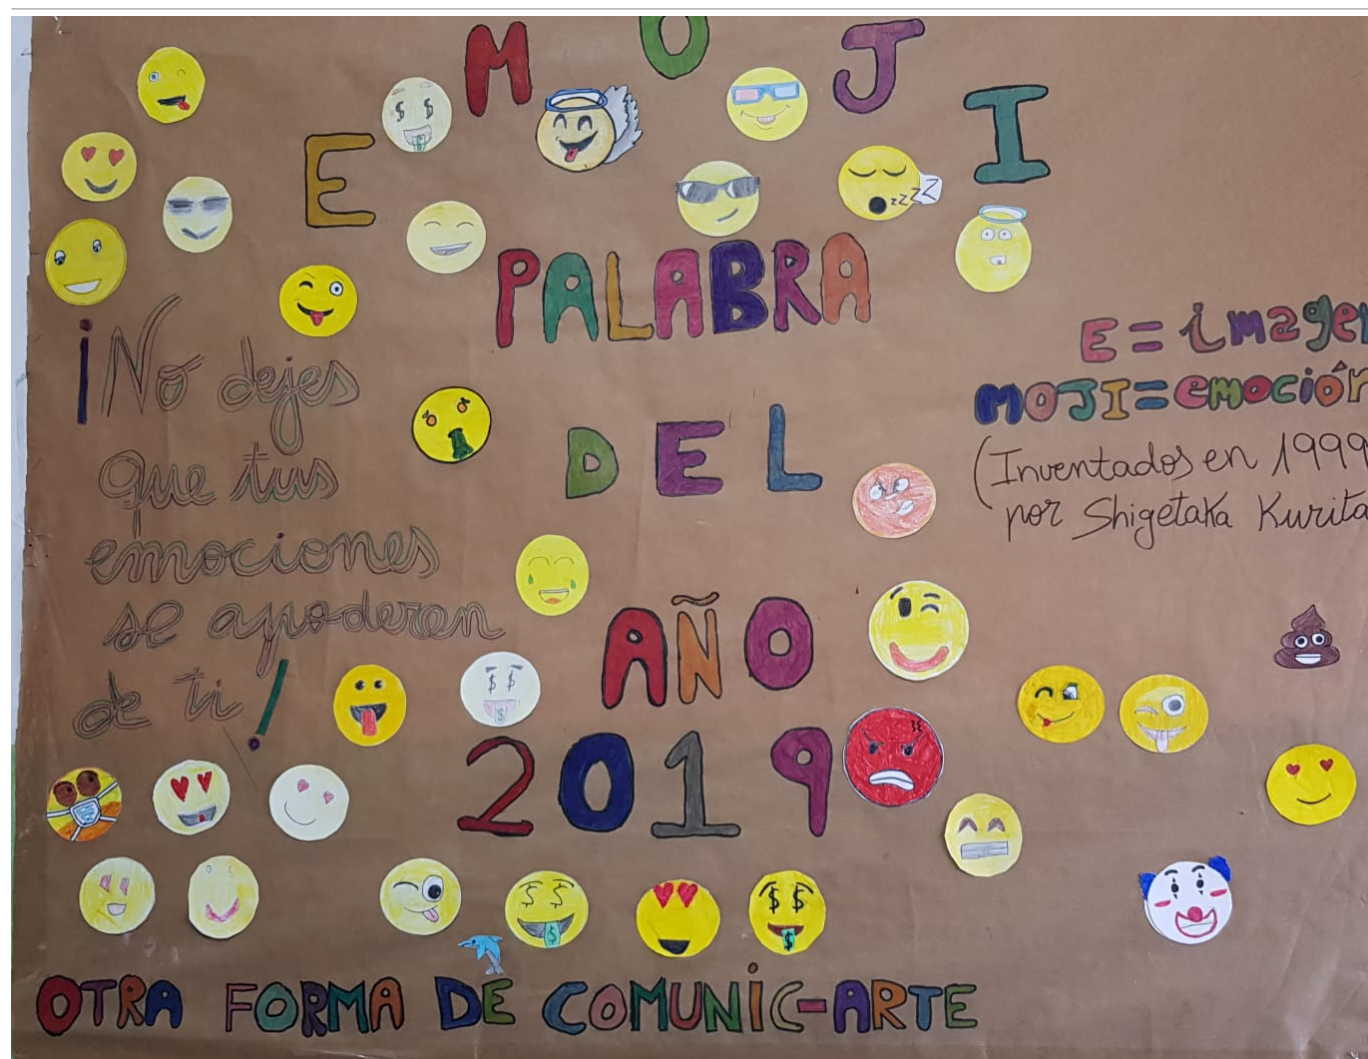 EMOJI
PALABRA
DEL
AÑO
2019
¡No dejes
que tus
emociones
se apoderen
de ti!
E = imagen
MOJI = emoción
(Inventados en 1999
por Shigetaka Kurita
zzZZ
OTRA FORMA DE COMUNIC-ARTE